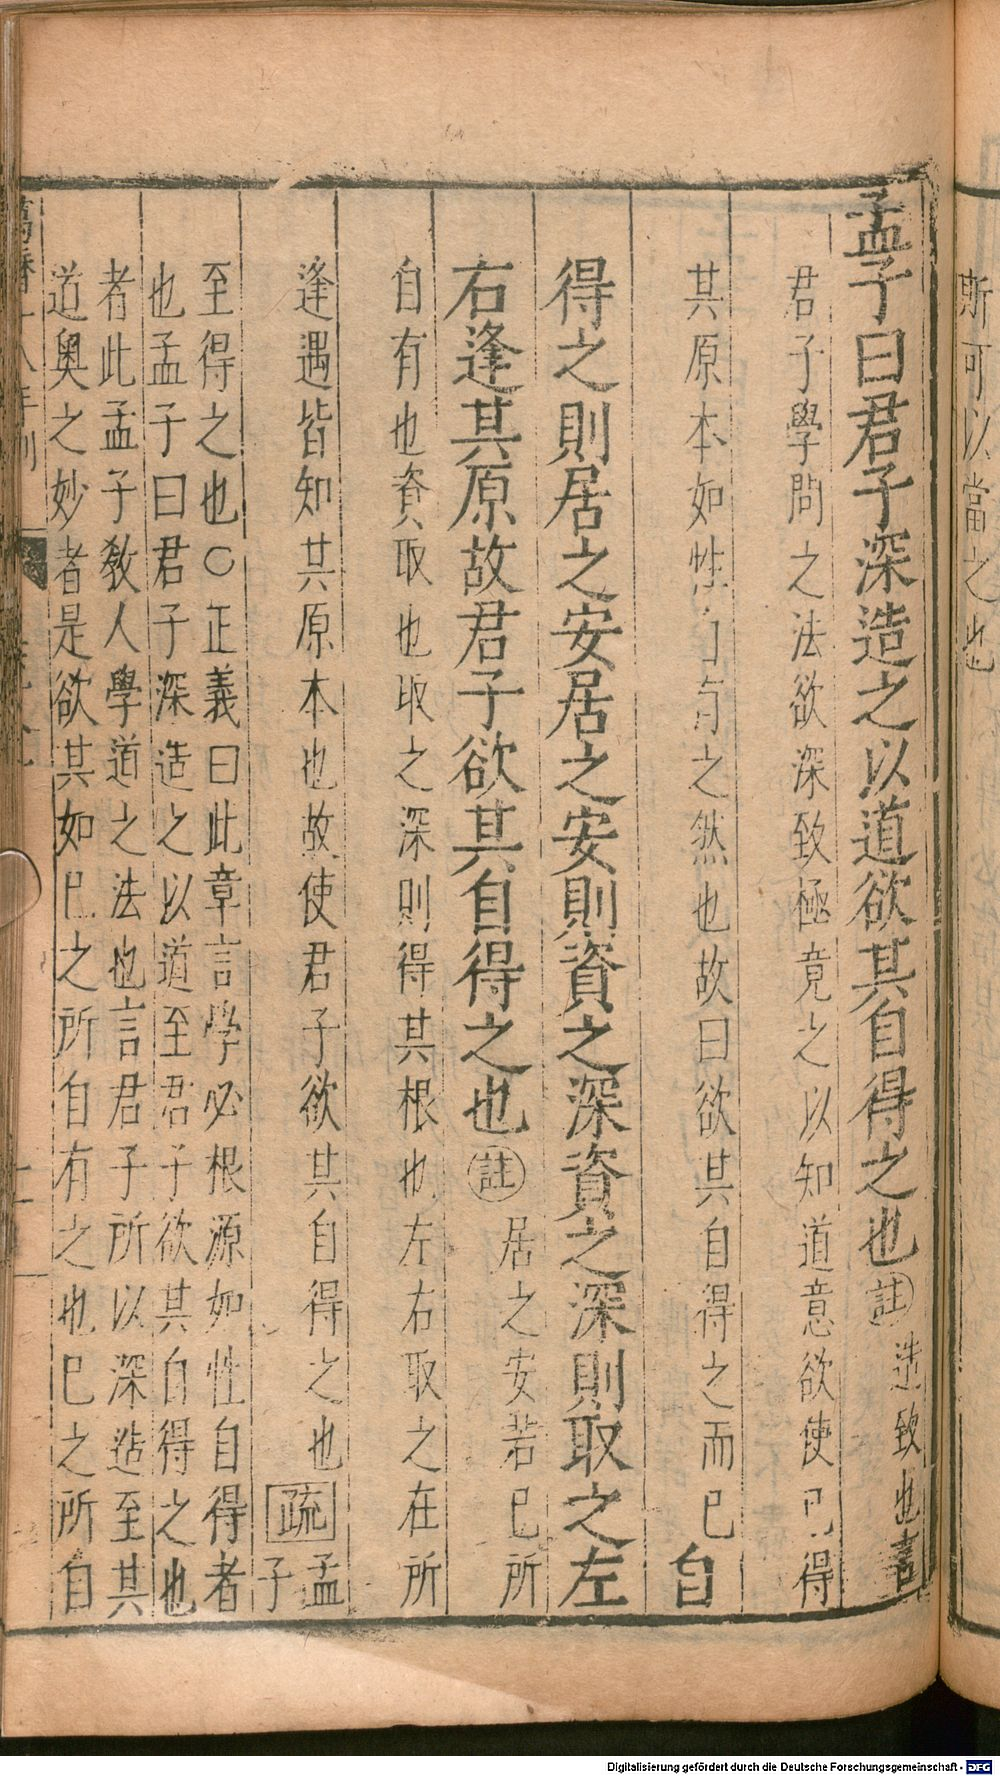 斯可以當之也
孟子曰君子深造之以道欲其自得之也註造致也言
君子學問之法欲深致極竟之以知道意欲使己得
其原本如性自有之然也故曰欲其自得之而已自
得之則居之安居之安則資之深資之深則取之左
右逢其原故君子欲其自得之也註居之安若已所
自有也資取也取之深則得其根也左右取之在所
逢遇皆知其原本也故使君子欲其自得之也疏孟
子
至得之也○正義曰此章言學必根源如性自得者
也孟子曰君子深造之以道至君子欲其自得之也
者此孟子教人學道之法也言君子所以深造至其
道奧之妙者是欲其如已之所自有之也已之所自
萬曆十八年刊
Digitalisierung gefördert durch die Deutsche Forschungsgemeinschaft - DFG